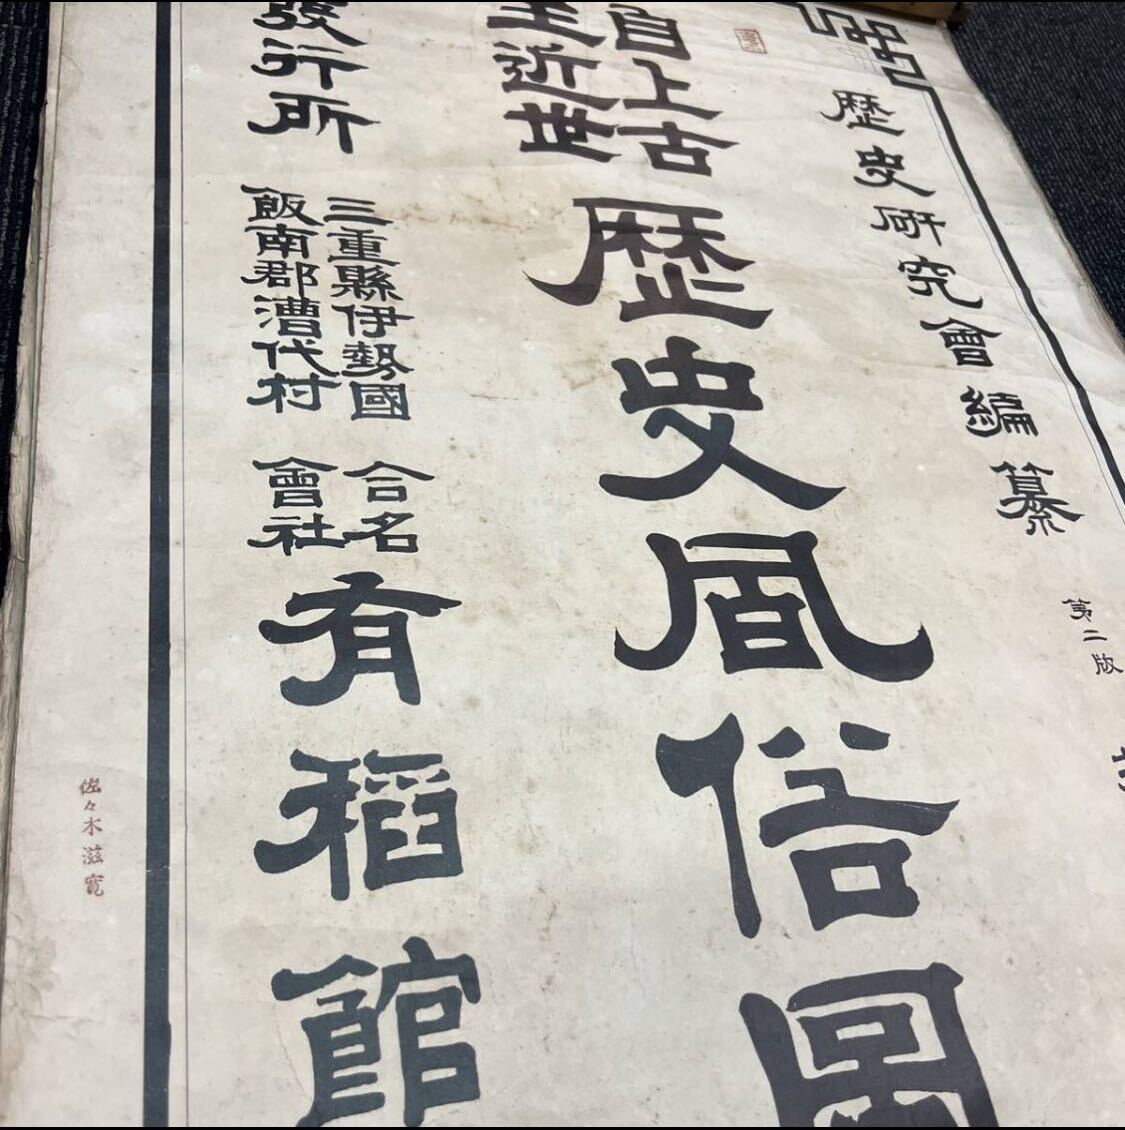 歴史研究會編纂
第二版
自上古
至近世
歴史風俗圖
發行所
三重縣伊勢國
飯南郡漕代村
合名
會社
有稻館
佐々木滋寛